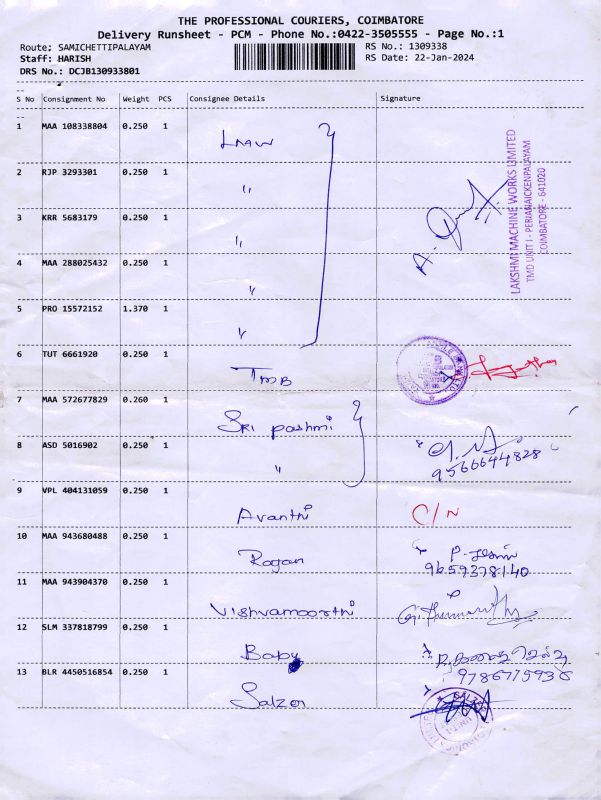 THE PROFESSIONAL COURIERS, COIMBATORE
Delivery Runsheet - PCM - Phone No.:0422-3505555 - Page No.:1
Route: SAMICHETTIPALAYAM
RS No.: 1309338
Staff: HARISH
RS Date: 22-Jan-2024
DRS No.: DCJB130933801
S No Consignment No Weight PCS Consignee Details Signature
1 MAA 108338804 0.250 1 LMW
2 RJP 3293301 0.250 1 "
3 KRR 5683179 0.250 1 "
4 MAA 288025432 0.250 1 "
5 PRO 15572152 1.370 1 "
LAKSHMI MACHINE WORKS LIMITED
TMD UNIT I - PERIANAICKENPALAYAM
COIMBATORE - 641020
6 TUT 6661920 0.250 1 TMB
7 MAA 572677829 0.260 1 Sri pashmi
8 ASD 5016902 0.250 1 "
9566644828
9 VPL 404131059 0.250 1 Avanthi C/N
10 MAA 943680488 0.250 1 Rogan
9659378140
11 MAA 943904370 0.250 1 Vishvamoorthi
12 SLM 337818799 0.250 1 Baby
13 BLR 4450516854 0.250 1 Salzer